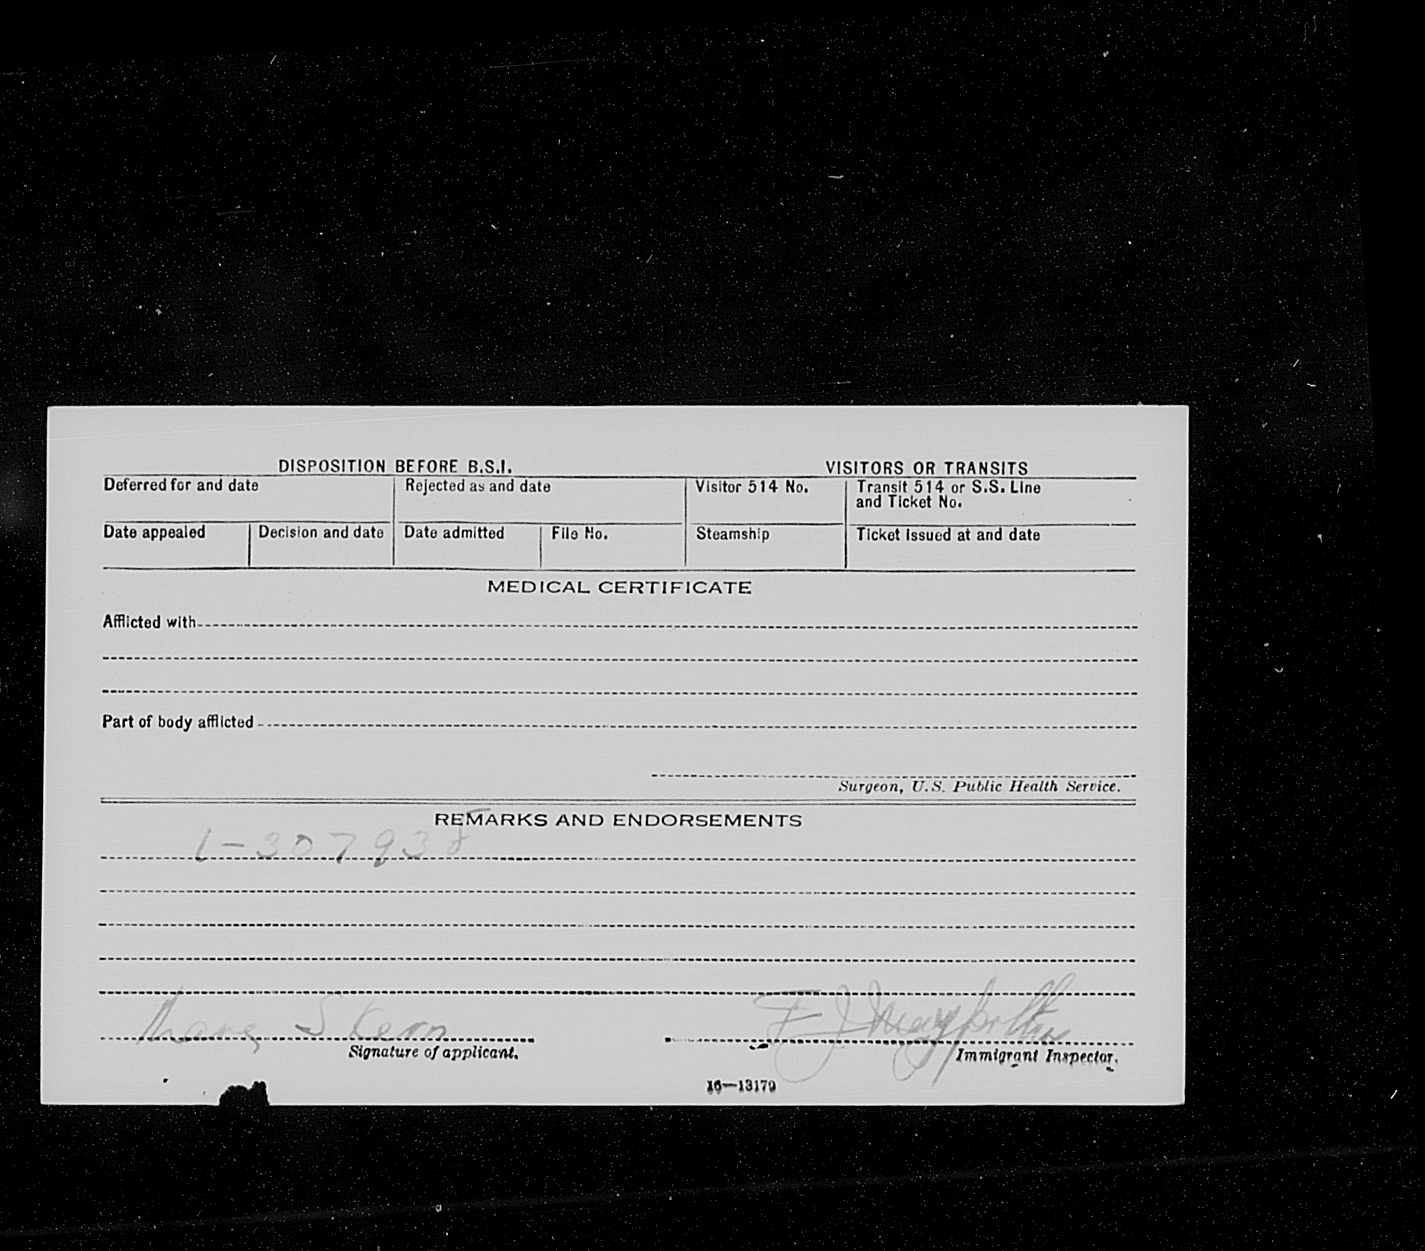 DISPOSITION BEFORE B.S.I. VISITORS OR TRANSITS
Deferred for and date Rejected as and date Visitor 514 No. Transit 514 or S.S. Line
and Ticket No.
Date appealed Decision and date Date admitted File No. Steamship Ticket issued at and date
MEDICAL CERTIFICATE
Afflicted with
Part of body afflicted
Surgeon, U.S. Public Health Service.
REMARKS AND ENDORSEMENTS
1-307938
Signature of applicant.
Immigrant Inspector.
16—13179